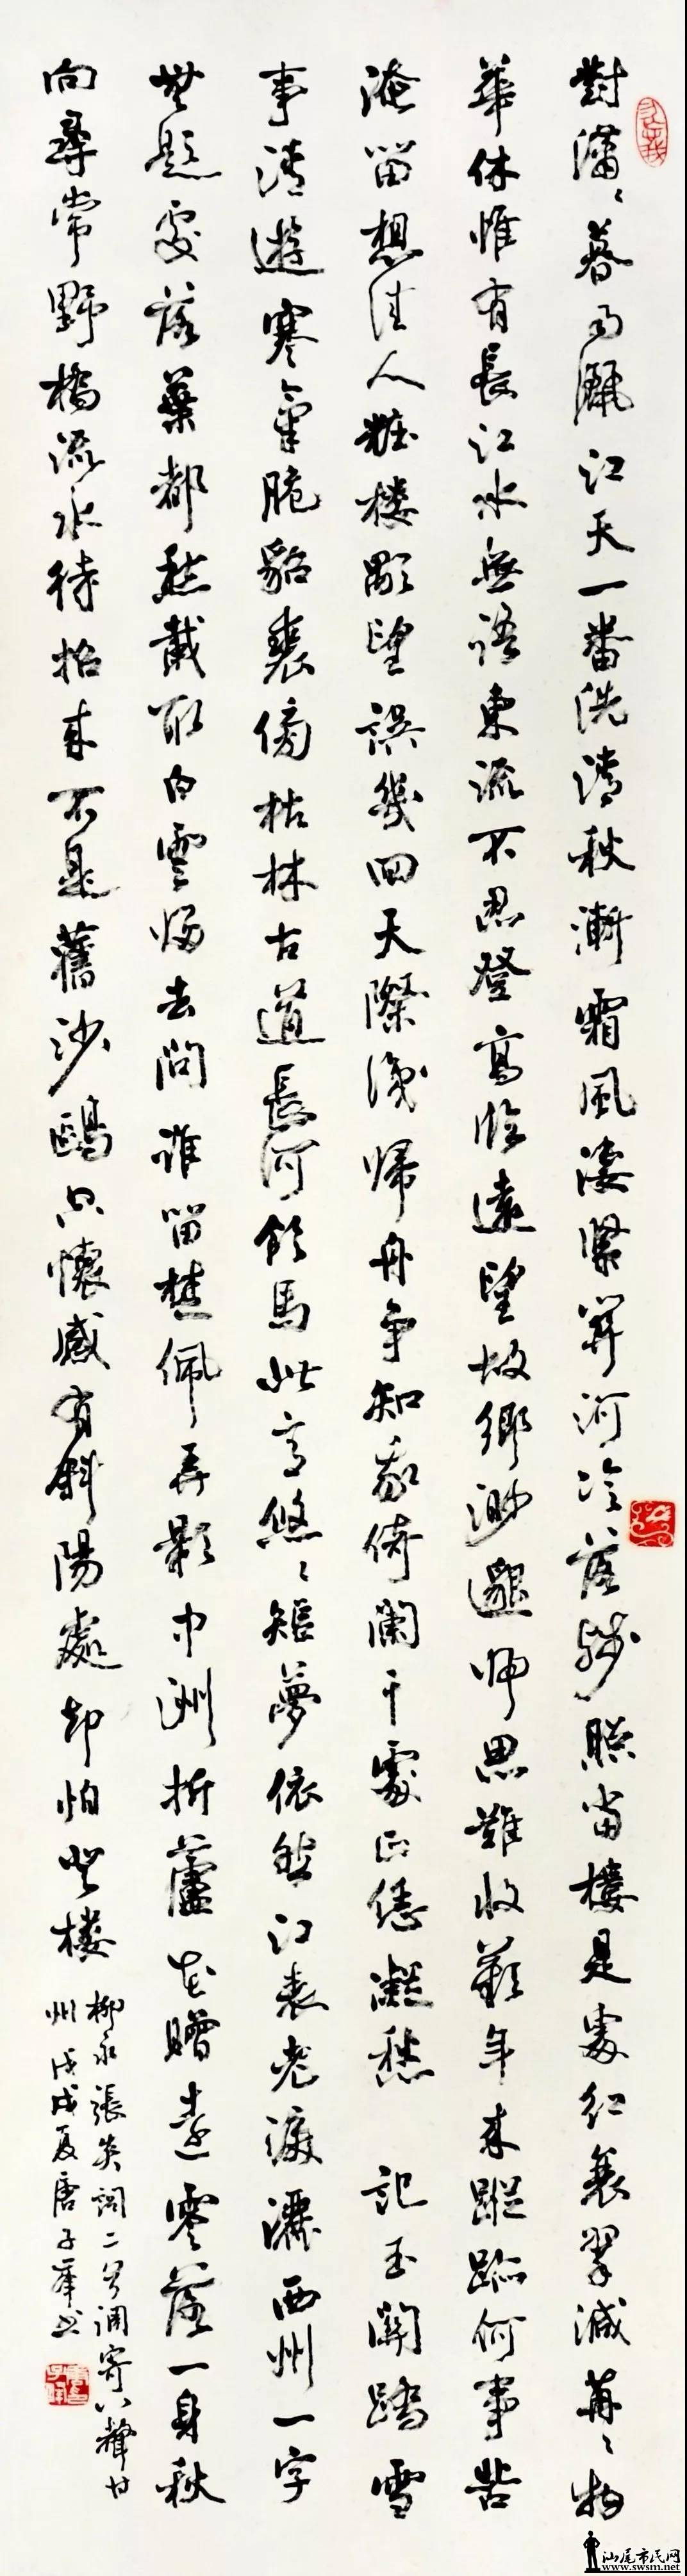 對瀟〻暮雨灑江天一番洗清秋漸霜風凄緊關河冷落殘照當樓是處紅衰翠減苒〻物
華休惟有長江水無語東流不忍登高臨遠望故鄉渺邈歸思難收歎年來蹤跡何事苦
淹留想佳人粧樓顒望誤幾回天際識歸舟爭知我倚闌干處正恁凝愁 記玉關踏雪
事清遊寒氣脆貂裘傍枯林古道長河飲馬此意悠〻短夢依然江表老淚灑西州一字
無題處落葉都愁載取白雲歸去問誰留楚佩弄影中洲折蘆花贈遠零落一身秋
向尋常野橋流水待招來不是舊沙鷗空懷感有斜陽處却怕登樓
柳永張炎詞二首調寄八聲甘
州戊戌夏唐子书
汕尾市民网
www.swsm.net